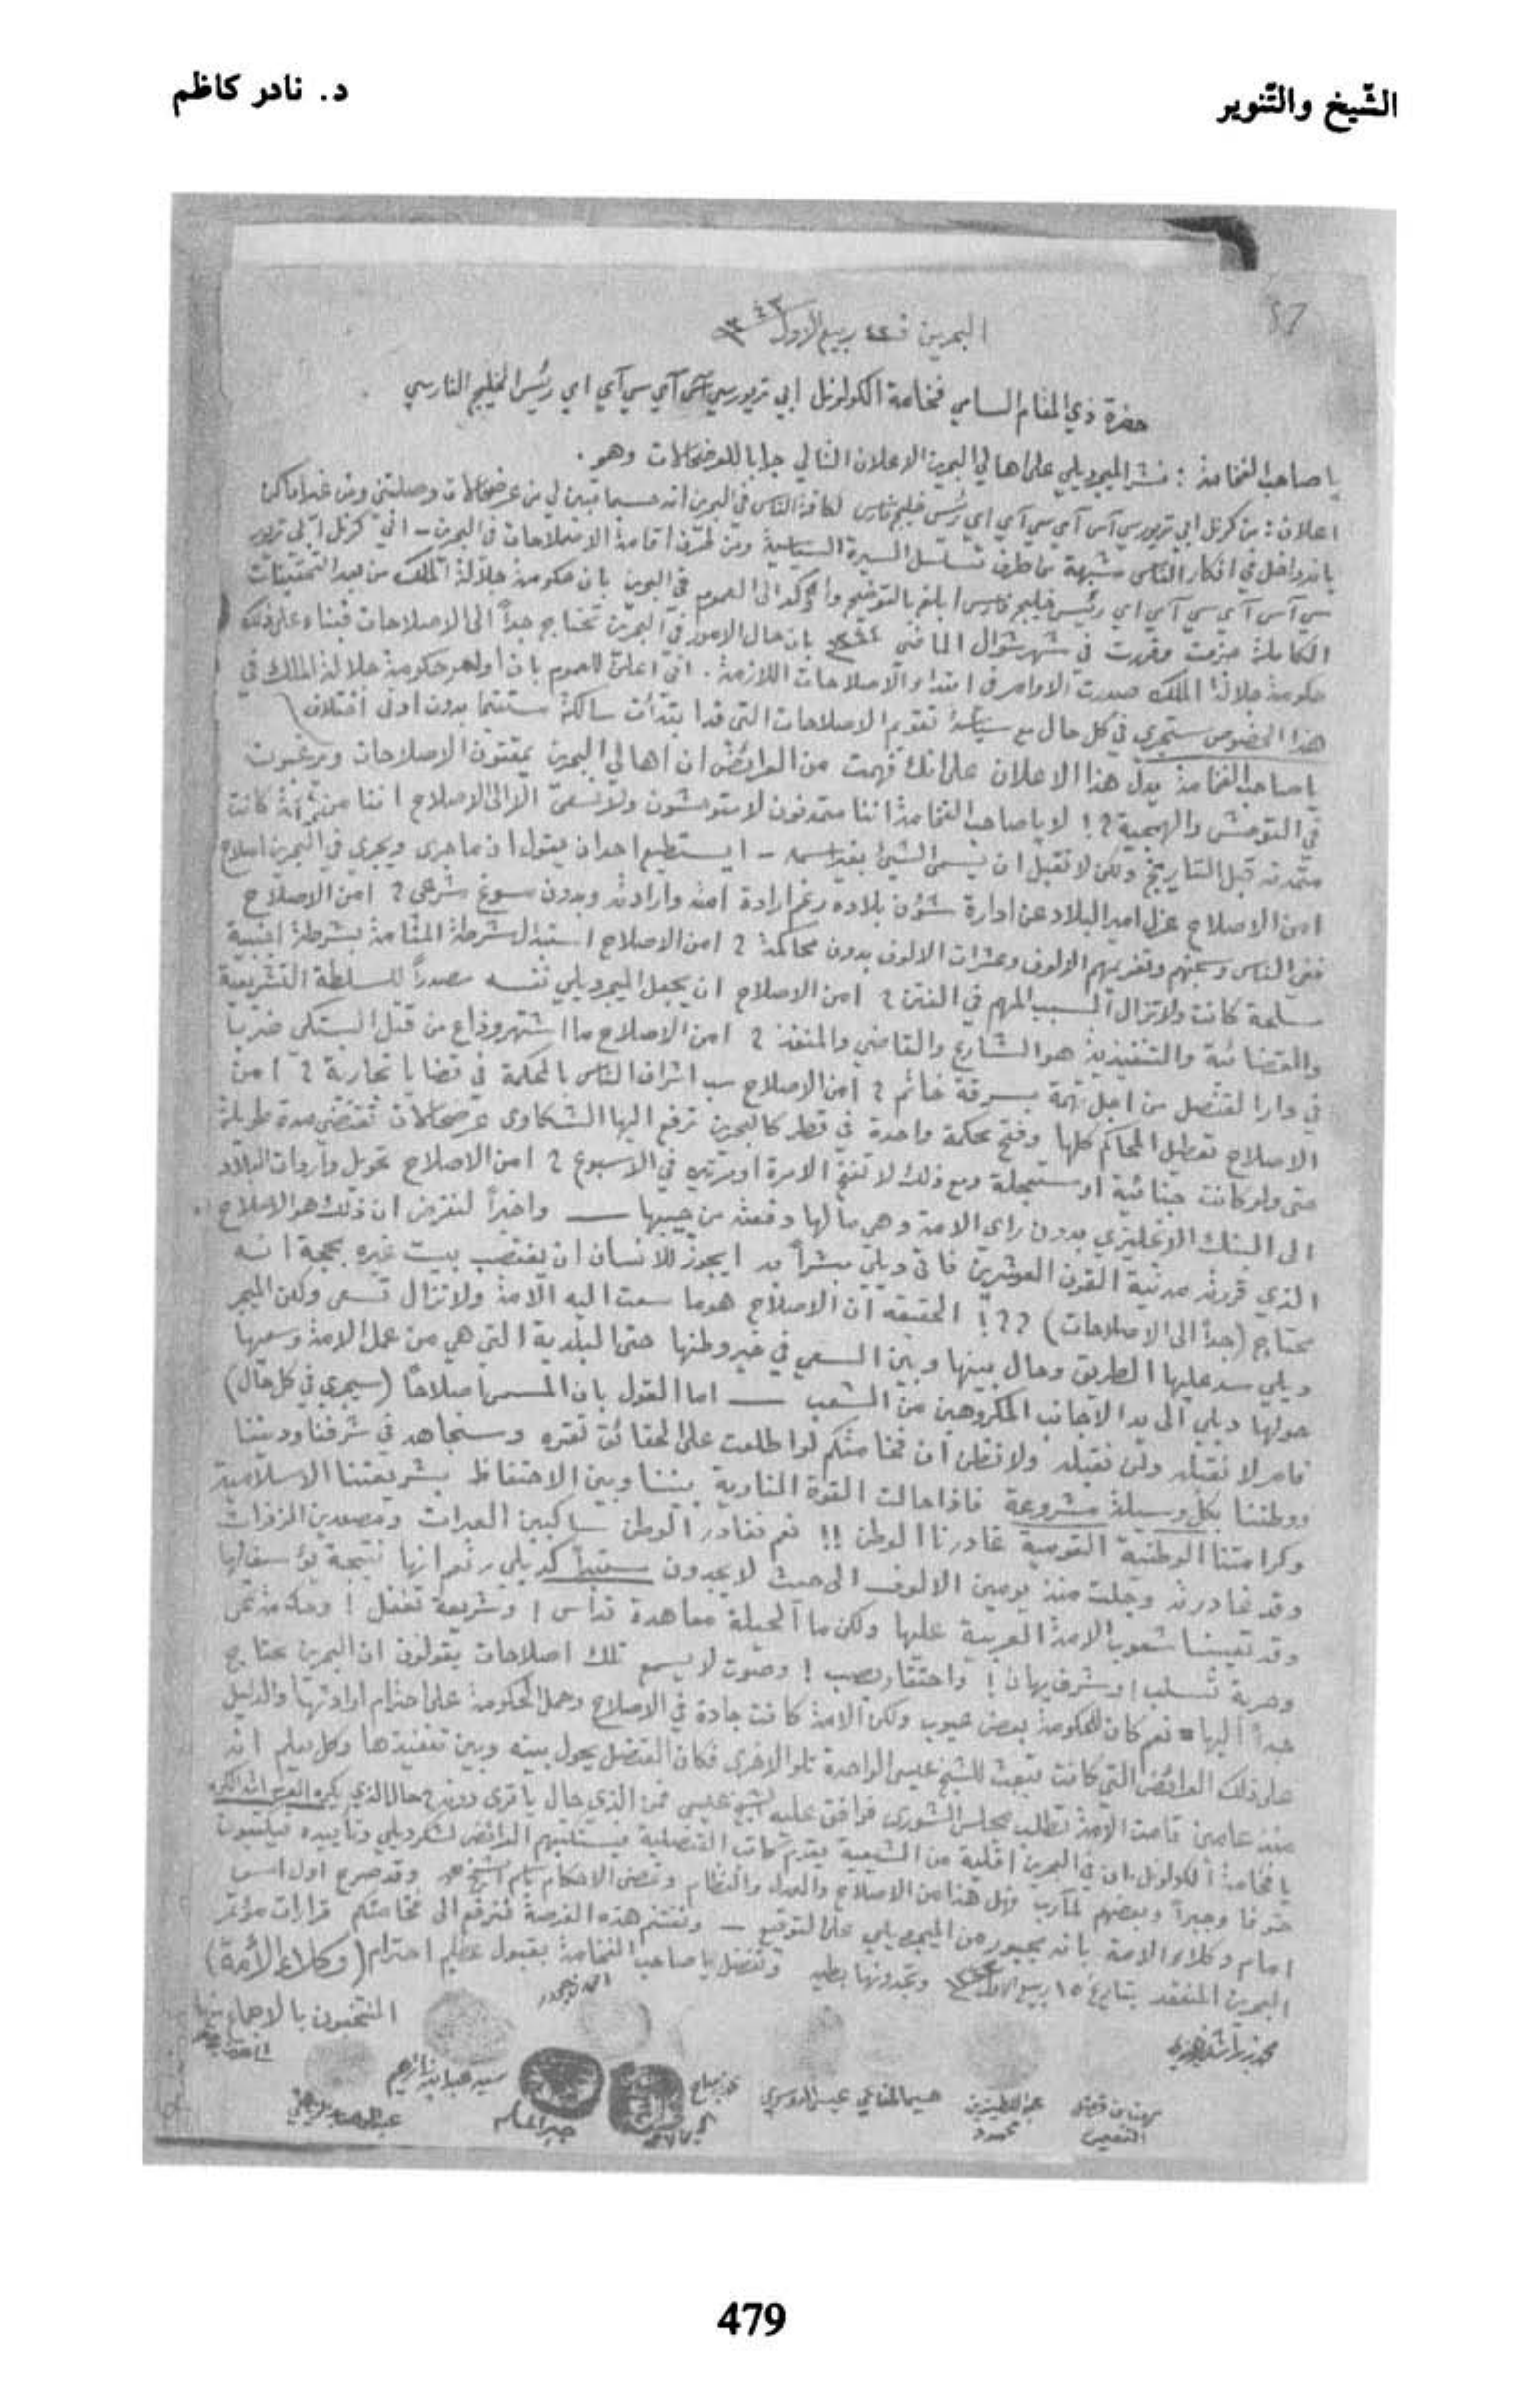 الشّيخ والتّنوير
د. نادر كاظم
البحرين في ربيع الاول ١٣٤٢
حضرة ذي المقام السامي فخامة الكولونل اي تريور سي آس آي سي آي اي رئيس الخليج الفارسي
يا صاحب الفخامة : نشر الميجر ديلي على اهالي البحرين الاعلان التالي جوابا للعرضحالات وهو .
اعلان : من كرنل اي تريور سي آس آي سي آي اي رئيس خليج فارس لكافة الناس في البحرين انه حسبما تبين لي من عرضحالات وصلتني ومن غير اماكن
بانه داخل في افكار الناس شبهة من طرف تسلسل السيرة السياسية ومن طرف اقامة الاصلاحات في البحرين - اني كرنل اي تريور
سي آس آي سي آي اي رئيس خليج فارس ابلغ بالتوضيح وأؤكد الى العموم في البحرين بان حكومة جلالة الملك من بعد التحقيقات
الكاملة جزمت وقررت في شهر شوال الماضي بان حال الامور في البحرين تحتاج جداً الى الاصلاحات فبناء على ذلك
حكومة جلالة الملك صدرت الاوامر في ابتداء الاصلاحات اللازمة . اني اعلن للعموم بان اوامر حكومة جلالة الملك في
هذا الخصوص ستجري في كل حال مع سياسة تقويم الاصلاحات التي قد ابتدأت سالكة ستنتها بدون ادنى اختلاف
يا صاحب الفخامة يدل هذا الاعلان على انك فهمت من العرائض ان اهالي البحرين يمقتون الاصلاحات ويرغبون
في التوحش والهمجية ؟! لا يا صاحب الفخامة اننا متمدنون لا متوحشون ولا نسعى الا الى الاصلاح اننا من امة كانت
متمدنة قبل التاريخ ولكن لا نقبل ان يسمى الشيئ بغير اسمه - ايستطيع احد ان يقول ان ما جرى ويجري في البحرين اصلاح
امن الاصلاح عزل امير البلاد عن ادارة شؤون بلاده رغم ارادة امته وارادته وبدون مسوغ شرعي ؟ امن الاصلاح
نفي الناس وسجنهم وتغريمهم الالوف وعشرات الالوف بدون محاكمة ؟ امن الاصلاح استبدال شرطة المنامة بشرطة اجنبية
مسلحة كانت ولا تزال السبب المهم في الفتن ؟ امن الاصلاح ان يجعل الميجر ديلي نفسه مصدراً للسلطة التشريعية
والقضائية والتنفيذية هو الشارع والقاضي والمنفذ ؟ امن الاصلاح ما اشتهر وذاع من قتل البستكي ضرباً
في دار القنصل من اجل تهمة بسرقة خاتم ؟ امن الاصلاح سب اشراف الناس بالمحكمة في قضايا تجارية ؟ امن
الاصلاح تعطيل المحاكم كلها وفتح محكمة واحدة في قطر كالبحرين ترفع اليها الشكاوى عرضحالات تقتضي مدة طويلة
حتى ولو كانت جنائية او مستعجلة ومع ذلك لا تفتح الا مرة او مرتين في الاسبوع ؟ امن الاصلاح تحويل واردات البلاد
الى البنك الانجليزي بدون راي الامة وهي مالها دفعته من جيبها — واخيراً لنفرض ان ذلك هو الاصلاح
الذي قررته مدنية القرن العشرين فاتى ديلي مبشراً به ايجوز للانسان ان يغتصب بيت غيره بحجة انه
محتاج (جداً الى الاصلاحات) ؟؟! الحقيقه ان الاصلاح هو ما سعت اليه الامة ولا تزال تسعى ولكن الميجر
ديلي سد عليها الطريق وحال بينها وبين السعي في خير وطنها حتى البلدية التي هي من عمل الامة وسعيها
حولها ديلي الى يد الاجانب المكروهين من الشعب — اما القول بان المسمى اصلاحاً (سيجري في كل حال)
فامر لا نقبله ولن نقبله ولا نظن ان فخامتكم لو اطلعت على الحقائق تقره وسنجاهد في شرفنا وديننا
ووطننا بكل وسيلة مشروعة فاذا حالت القوة النارية بيننا وبين الاحتفاظ بشريعتنا الاسلامية
وكرامتنا الوطنية القومية غادرنا الوطن !! نعم نغادر الوطن ساكبين العبرات ومصعدين الزفرات
وقد غادرته وجلت منذ يومين الالوف الى حيث لا يجدون مستبداً كديلي رغم انها نتيجة يؤسف لها
وقد تعيبنا شعوب الامة العربية عليها ولكن ما الحيلة معاهدة تداس ! وشريعة تغفل !
وحرية تسلب ! وشرف يهان ! واحتقار يصب ! وصوت لا يسمع تلك اصلاحات يقولون ان البحرين محتاج
جداً اليها نعم كان للحكومة بعض عيوب ولكن الامة كانت جادة في الاصلاح وحمل الحكومة على احترام ارادتها والدليل
على ذلك العرائض التي كانت تبعث للشيخ عيسى الواحدة تلو الاخرى فكان القنصل يحول بينه وبين تنفيذها وكل يعلم انه
منذ عامين قامت الامة تطلب مجلس الشورى فوافق عليه الشيخ عيسى فمن الذي حال يا ترى دونه ؟
يا فخامة الكولونل ان في البحرين اقلية من الشيعية
خوفا وجبراً وبعضهم لمآرب فهل هذا من الاصلاح والعدل والنظام وقد صرح اول امس
امام وكلاء الامة بانه مجبور من الميجر ديلي على التوقيع - ونغتنم هذه الفرصة فنرفع الى فخامتكم قرارات مؤتمر
البحرين المنعقد بتاريخ ١٥ ربيع الاول وتجدونها بطيه وتفضل يا صاحب الفخامة بقبول عظيم احترام (وكلاء الأمة)
المنتخبون بالاجماع
عبد اللطيف بن محمود
عيسى الدوسري
سيد عبد الله ابراهيم
جبر المسلم
479